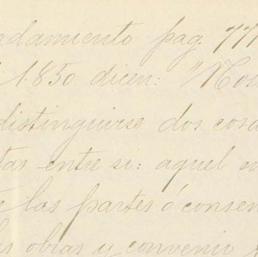 ndamiento pag. 77
1850 dicen: "No
distinguirse dos cosa
tas entre si: aquel
las partes ó consen
obras y convenio